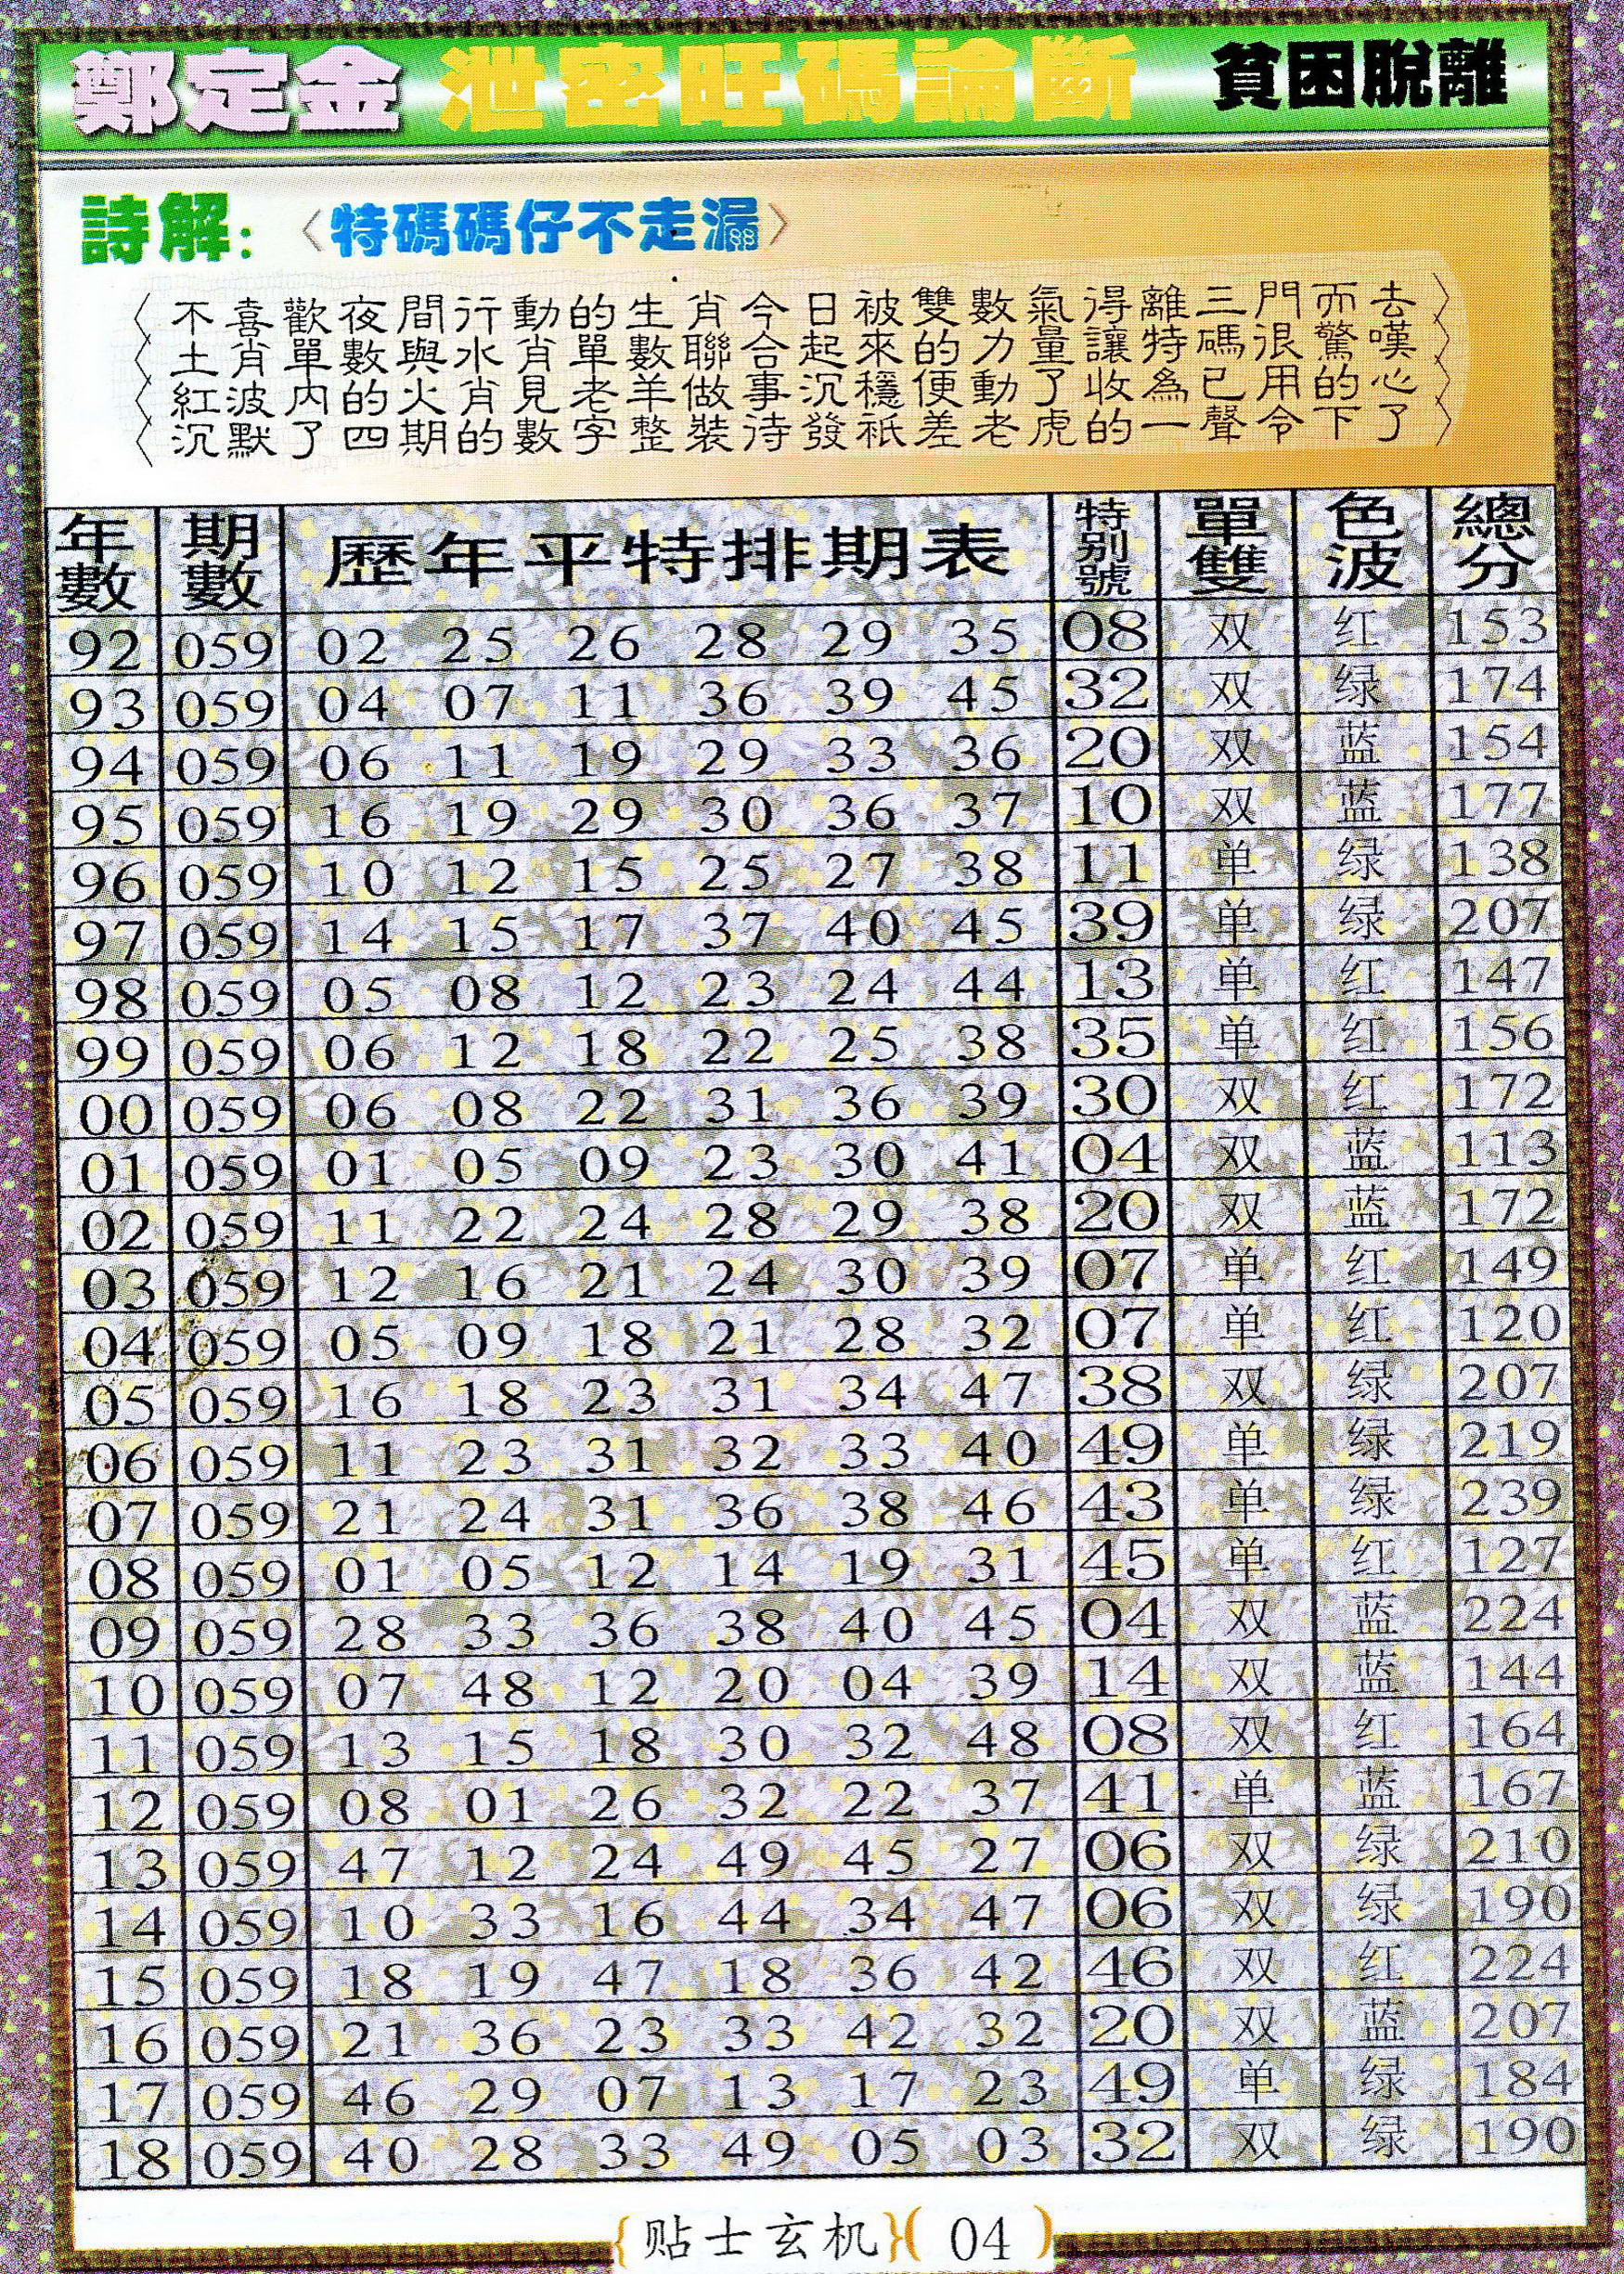 鄭定金 泄密旺碼論斷 貧困脫離
詩解:〈特碼碼仔不走漏〉
〈不喜歡夜間行動的生肖今日被雙數氣得離三門而去〉
〈土肖單數與水肖單數聯合起來的力量讓特碼很驚嘆〉
〈紅波內的火肖見老羊做事沉穩便動了收為已用的心〉
〈沉默了四期的數字整裝待發祇差老虎的一聲令下了〉
年數 期數 歷年平特排期表 特别號 單雙 色波 總分
92 059 02 25 26 28 29 35 08 双 红 153
93 059 04 07 11 36 39 45 32 双 绿 174
94 059 06 11 19 29 33 36 20 双 蓝 154
95 059 16 19 29 30 36 37 10 双 蓝 177
96 059 10 12 15 25 27 38 11 单 绿 138
97 059 14 15 17 37 40 45 39 单 绿 207
98 059 05 08 12 23 24 44 13 单 红 147
99 059 06 12 18 22 25 38 35 单 红 156
00 059 06 08 22 31 36 39 30 双 红 172
01 059 01 05 09 23 30 41 04 双 蓝 113
02 059 11 22 24 28 29 38 20 双 蓝 172
03 059 12 16 21 24 30 39 07 单 红 149
04 059 05 09 18 21 28 32 07 单 红 120
05 059 16 18 23 31 34 47 38 双 绿 207
06 059 11 23 31 32 33 40 49 单 绿 219
07 059 21 24 31 36 38 46 43 单 绿 239
08 059 01 05 12 14 19 31 45 单 红 127
09 059 28 33 36 38 40 45 04 双 蓝 224
10 059 07 48 12 20 04 39 14 双 蓝 144
11 059 13 15 18 30 32 48 08 双 红 164
12 059 08 01 26 32 22 37 41 单 蓝 167
13 059 47 12 24 49 45 27 06 双 绿 210
14 059 10 33 16 44 34 47 06 双 绿 190
15 059 18 19 47 18 36 42 46 双 红 224
16 059 21 36 23 33 42 32 20 双 蓝 207
17 059 46 29 07 13 17 23 49 单 绿 184
18 059 40 28 33 49 05 03 32 双 绿 190
{贴士玄机}(04)